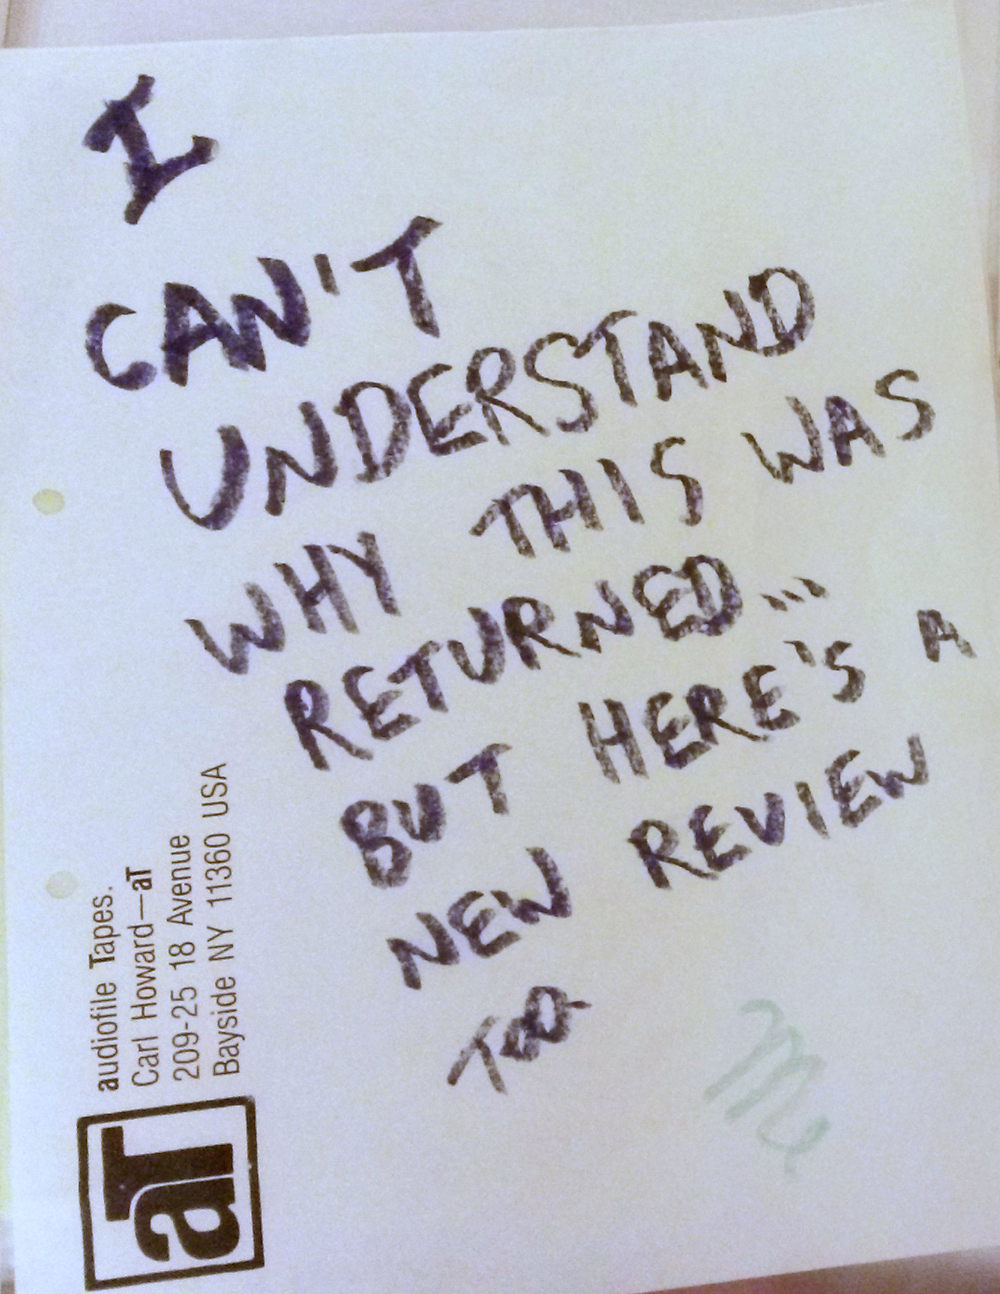 I
CAN'T
UNDERSTAND
WHY THIS WAS
RETURNED...
BUT HERE'S A
NEW REVIEW
TOO
audiofile Tapes.
Carl Howard—aT
209-25 18 Avenue
Bayside NY 11360 USA
aT